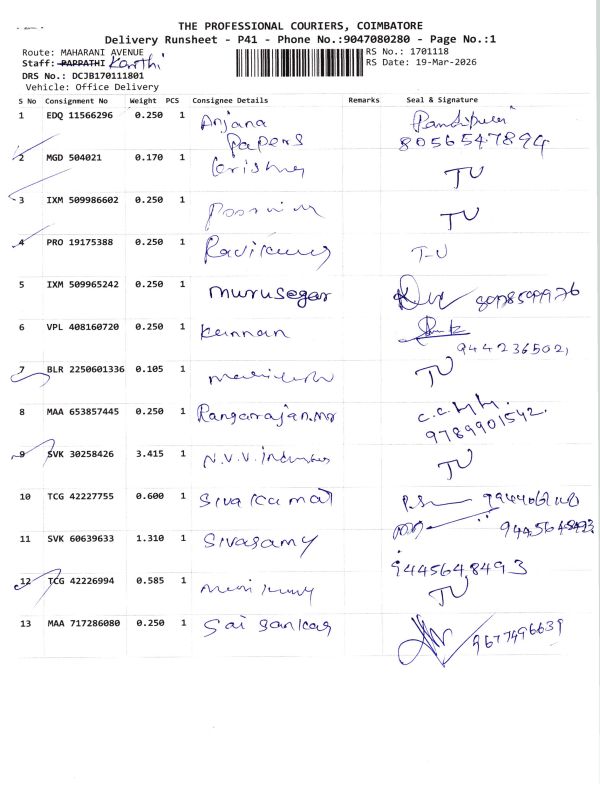 THE PROFESSIONAL COURIERS, COIMBATORE
Delivery Runsheet - P41 - Phone No.:9047080280 - Page No.:1
Route: MAHARANI AVENUE RS No.: 1701118
Staff: PAPPATHI Karthi RS Date: 19-Mar-2026
DRS No.: DCJB170111801
Vehicle: Office Delivery
S No Consignment No Weight PCS Consignee Details Remarks Seal & Signature
1 EDQ 11566296 0.250 1 Anjana Papers 8056547894
2 MGD 504021 0.170 1 TU
3 IXM 509986602 0.250 1 TU
4 PRO 19175388 0.250 1 Ravikumar T-U
5 IXM 509965242 0.250 1 murusegar
6 VPL 408160720 0.250 1 Kannan 944236502,
7 BLR 2250601336 0.105 1 TU
8 MAA 653857445 0.250 1 Rangarajan.mr 9789901542.
9 SVK 30258426 3.415 1 N.V.V. industries TU
10 TCG 42227755 0.600 1 Sivakumar
11 SVK 60639633 1.310 1 Sivasamy 9445648493
12 TCG 42226994 0.585 1 TU
13 MAA 717286080 0.250 1 Sai Sankar 9677496639